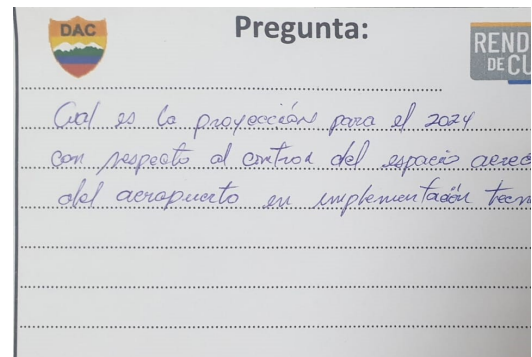 DAC
Pregunta:
REND
DE CU
Cual es la proyección para el 2024
con respecto al control del espacio aereo
del aeropuerto en implementación tecn